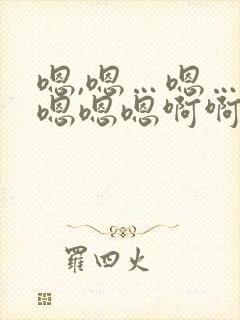 嗯,嗯…嗯…
嗯嗯嗯啊啊
羅四火